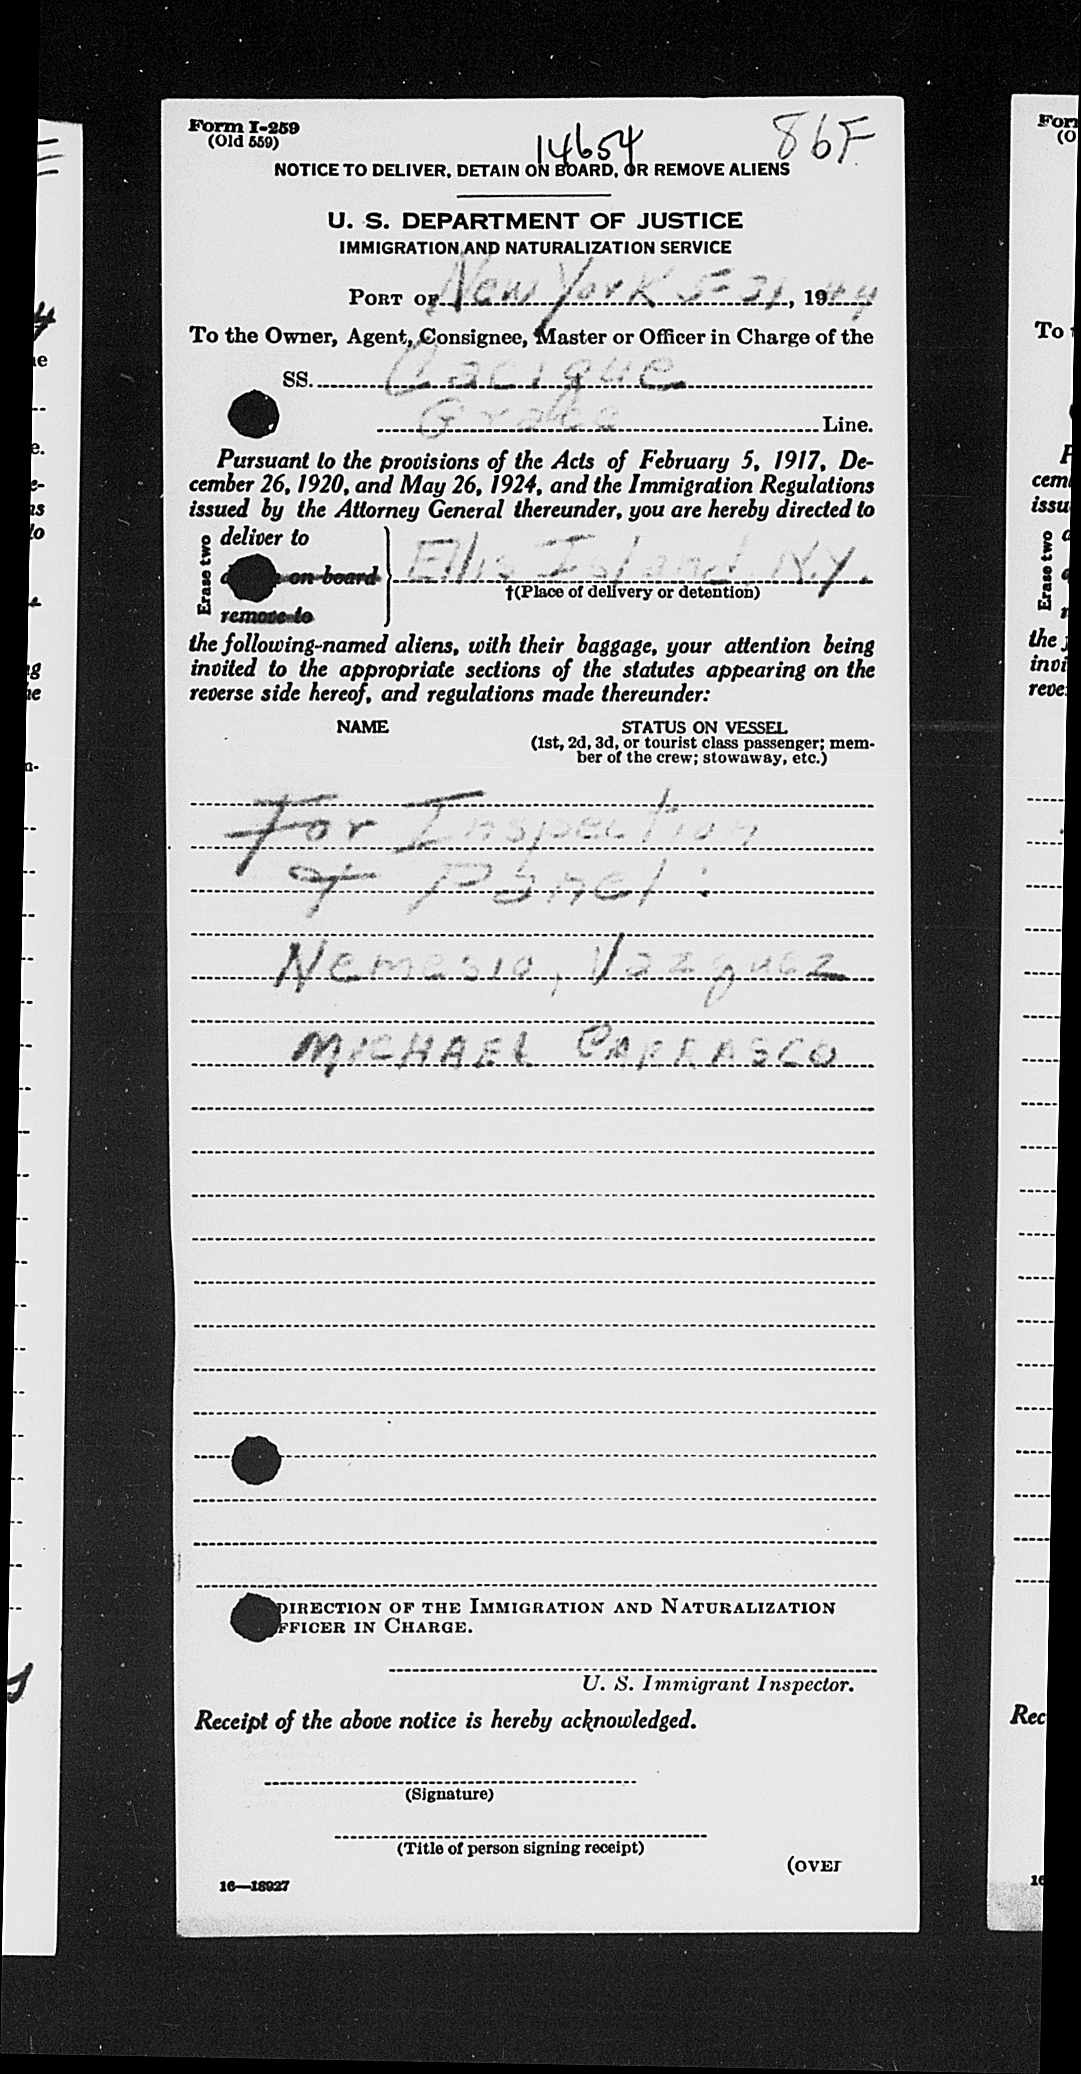 Form I-259
(Old 559)
14654
86F
NOTICE TO DELIVER, DETAIN ON BOARD, OR REMOVE ALIENS
U. S. DEPARTMENT OF JUSTICE
IMMIGRATION AND NATURALIZATION SERVICE
PORT OF New York 5-31, 1944
To the Owner, Agent, Consignee, Master or Officer in Charge of the
SS. Cacique
Grace Line.
Pursuant to the provisions of the Acts of February 5, 1917, De-
cember 26, 1920, and May 26, 1924, and the Immigration Regulations
issued by the Attorney General thereunder, you are hereby directed to
Erase two
deliver to
on board
remove to
Ellis Island N.Y.
†(Place of delivery or detention)
the following-named aliens, with their baggage, your attention being
invited to the appropriate sections of the statutes appearing on the
reverse side hereof, and regulations made thereunder:
NAME STATUS ON VESSEL
(1st, 2d, 3d, or tourist class passenger; mem-
ber of the crew; stowaway, etc.)
For Inspection
+ Panel:
Nemesio, Vazquez
MICHAEL CARRASCO
DIRECTION OF THE IMMIGRATION AND NATURALIZATION
FFICER IN CHARGE.
U. S. Immigrant Inspector.
Receipt of the above notice is hereby acknowledged.
(Signature)
(Title of person signing receipt)
(OVER
16—18927